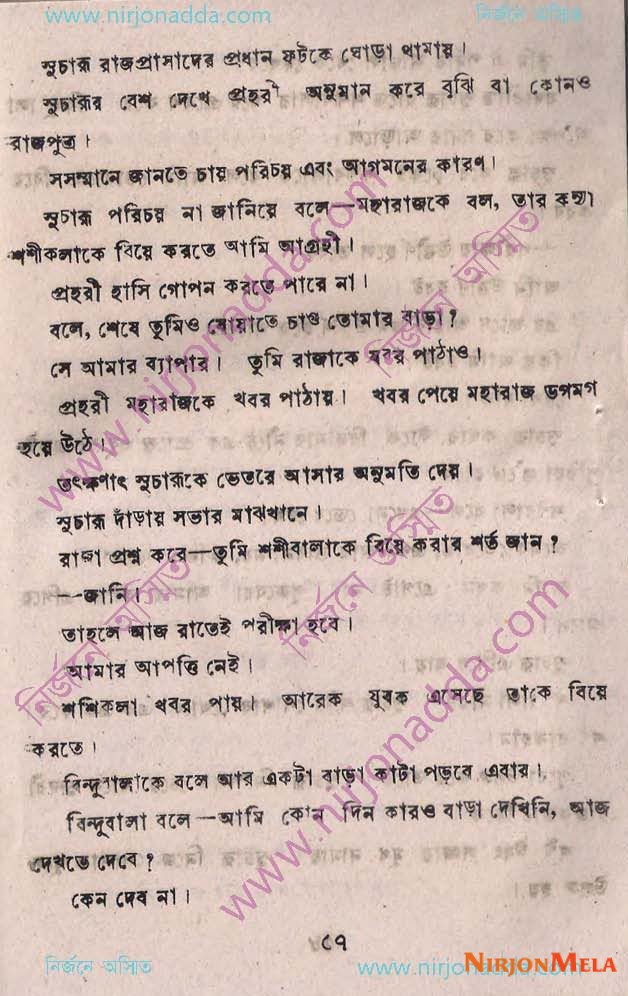 www.nirjonadda.com নির্জনে অস্মিত
সুচারু রাজপ্রাসাদের প্রধান ফটকে ঘোড়া থামায়।
সুচারুর বেশ দেখে প্রহরী অনুমান করে বুঝি বা কোনও
রাজপুত্র।
সসম্মানে জানতে চায় পরিচয় এবং আগমনের কারণ।
সুচারু পরিচয় না জানিয়ে বলে—মহারাজকে বল, তার কন্যা
শশীকলাকে বিয়ে করতে আমি আগ্রহী।
প্রহরী হাসি গোপন করতে পারে না।
বলে, শেষে তুমিও খোয়াতে চাও তোমার বাড়া?
সে আমার ব্যাপার। তুমি রাজাকে খবর পাঠাও।
প্রহরী মহারাজকে খবর পাঠায়। খবর পেয়ে মহারাজ ডগমগ
হয়ে উঠে।
তৎক্ষণাৎ সুচারুকে ভেতরে আসার অনুমতি দেয়।
সুচারু দাঁড়ায় সভার মাঝখানে।
রাজা প্রশ্ন করে—তুমি শশীবালাকে বিয়ে করার শর্ত জান?
—জানি।
তাহলে আজ রাতেই পরীক্ষা হবে।
আমার আপত্তি নেই।
শশিকলা খবর পায়। আরেক যুবক এসেছে তাকে বিয়ে
করতে।
বিন্দুবালাকে বলে আর একটা বাড়া কাটা পড়বে এবার।
বিন্দুবালা বলে—আমি কোন দিন কারও বাড়া দেখিনি, আজ
দেখতে দেবে?
কেন দেব না।
৮৭
নির্জনে অস্মিত www.nirjonadda.com
NIRJONMELA
www.nirjonadda.com
নির্জনে অস্মিত
www.nirjonadda.com
নির্জনে অস্মিত
নির্জনে অস্মিত